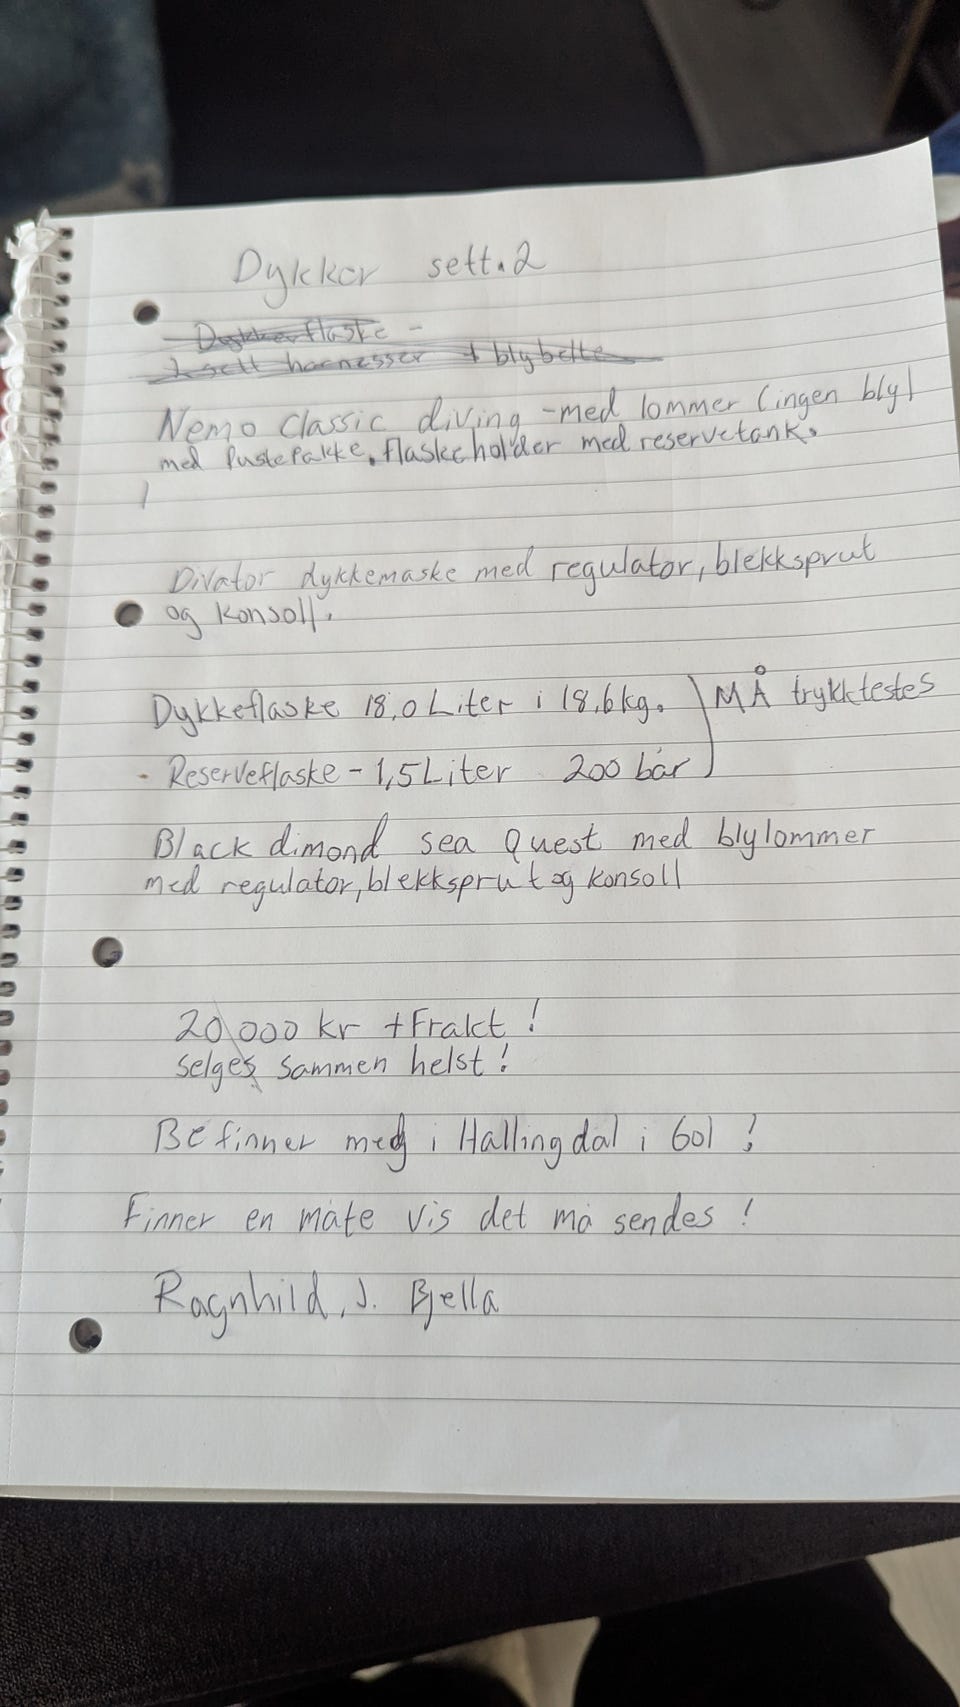 Dykker sett.2
Dykkerflaske -
2 sett harnesser + blybelte
Nemo classic diving -med lommer (ingen bly)
med Pustepakke. flaskeholder med reservetank.
Divator dykkemaske med regulator, blekksprut
og konsoll.
Dykkeflaske 18,0 Liter i 18,6kg. ) MÅ trykktestes
- Reserveflaske - 1,5 Liter 200 bar
Black dimond sea Quest med blylommer
med regulator, blekksprut og konsoll
20,000 kr + Frakt !
selges sammen helst !
Befinner meg i Hallingdal i Gol !
Finner en måte vis det må sendes !
Ragnhild. J. Bjella